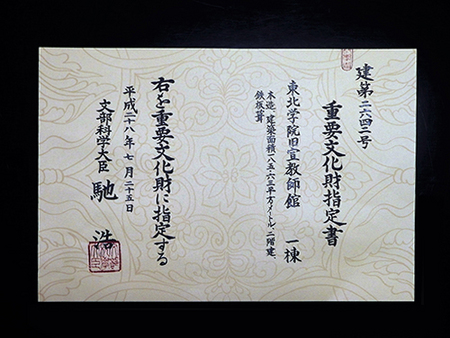 建第二六四二号
重要文化財指定書
東北学院旧宣教師館 一棟
木造、建築面積一八五・六五平方メートル、二階建、
鉄板葺
右を重要文化財に指定する
平成二十八年七月二十五日
文部科学大臣 馳 浩